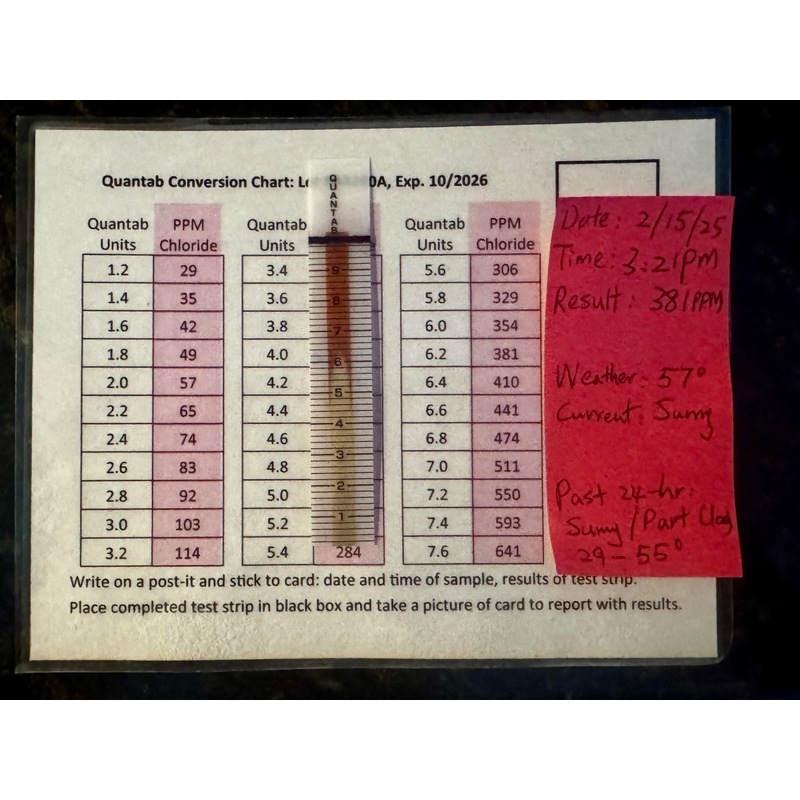 Quantab Conversion Chart: 0A, Exp. 10/2026
Quantab Units PPM Chloride
1.2 29
1.4 35
1.6 42
1.8 49
2.0 57
2.2 65
2.4 74
2.6 83
2.8 92
3.0 103
3.2 114
Quantab Units
3.4
3.6
3.8
4.0
4.2
4.4
4.6
4.8
5.0
5.2
5.4 284
QUANTAB
9
8
7
6
5
4
3
2
1
Quantab Units PPM Chloride
5.6 306
5.8 329
6.0 354
6.2 381
6.4 410
6.6 441
6.8 474
7.0 511
7.2 550
7.4 593
7.6 641
Date: 2/15/25
Time: 3:21pm
Result: 381PPM
Weather: 57°
Current: Sunny
Past 24-hr:
Sunny / Part
29 - 55°
Write on a post-it and stick to card: date and time of sample, results of test strip.
Place completed test strip in black box and take a picture of card to report with results.